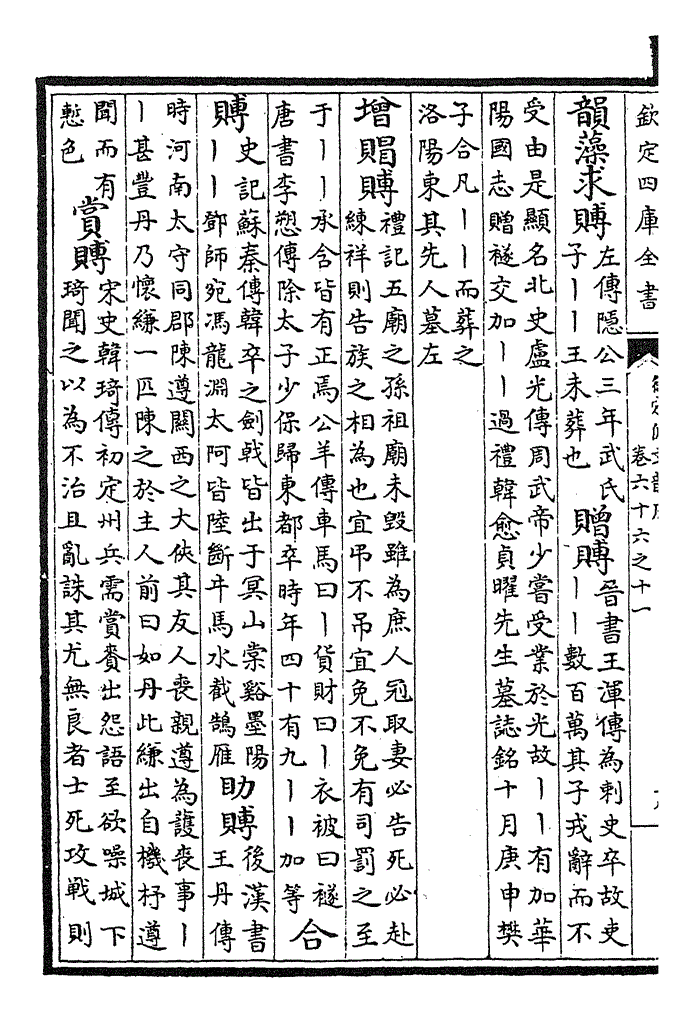 欽定四庫全書
卷六十六之十一
韻藻求賻左傳隱公三年武氏
子丨丨王未葬也
贈賻晉書王渾傳為刺史卒故吏
丨丨數百萬其子戎辭而不
受由是顯名北史盧光傳周武帝少嘗受業於光故丨丨有加華
陽國志贈襚交加丨丨過禮韓愈貞曜先生墓誌銘十月庚申樊
子合凡丨丨而葬之
洛陽東其先人墓左
增賵賻禮記五廟之孫祖廟未毀雖為庶人冠取妻必告死必赴
練祥則告族之相為也宜弔不吊宜免不免有司罰之至
于丨丨承含皆有正焉公羊傳車馬曰丨貨財曰丨衣被曰襚
唐書李愬傳除太子少保歸東都卒時年四十有九丨丨加等
合
賻史記蘇秦傳韓卒之劍戟皆出于冥山棠谿墨陽
丨丨鄧師宛馮龍淵太阿皆陸斷牛馬水截鵠雁
助賻後漢書
王丹傳
時河南太守同郡陳遵關西之大俠其友人喪親遵為護喪事丨
丨甚豐丹乃懷縑一匹陳之於主人前曰如丹此縑出自機杼遵
聞而有
慙色
賞賻宋史韓琦傳初定州兵需賞賚出怨語至欲噪城下
琦聞之以為不治且亂誅其尤無良者士死攻戰則